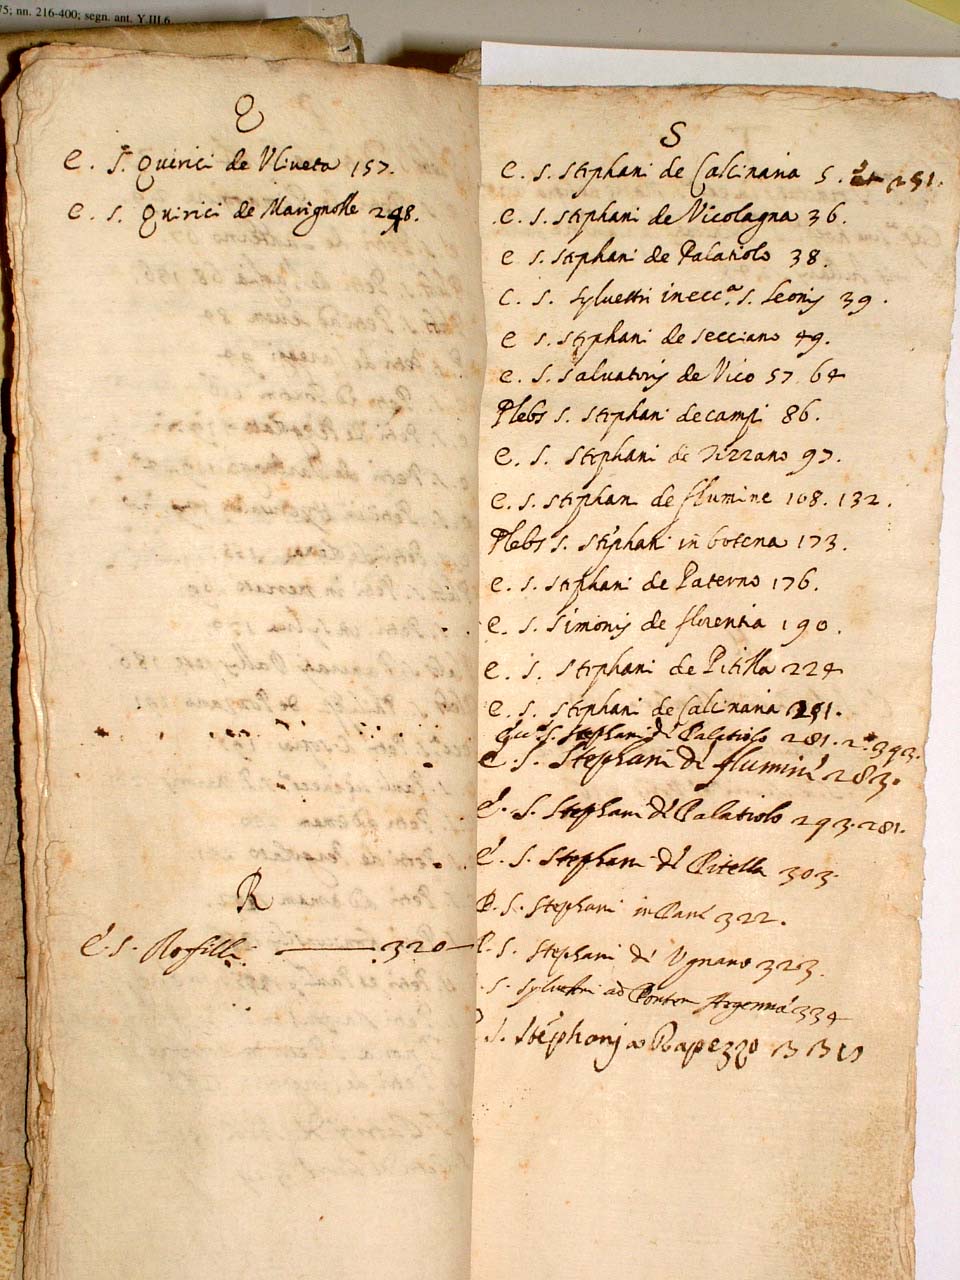 75; nn. 216-400; segn. ant. Y.III.6
Q
e. S. Quirici de Vliveta 157.
e. S. Quirici de Marignolle 248.
R
é. S. Rossilli 320
S
e. S. Stephani de Calcinaria 5. et 251.
e. S. Stephani de Vicolagna 36.
e S. Stephani de Palatiolo 38.
C. S. Sylvestri in ecc.ª S. Leonis 39.
e S. Stephani de Secciano 49.
e. S. Salvatoris de Vico 57. 64
Plebs S. Stephani de campi 86.
e. S. Stephani de Tizzano 97.
e. S. Stephani de flumine 108. 132.
Plebs S. Stephani in botena 173.
e. S. Stephani de Paterno 176.
e. S. Simonis de florentia 190.
e. S. Stephani de Pitilla 224
e. S. Stephani de Calcinaria 251.
S. Stephani dé Palatiolo 281. 293.
e. S. Stephani dé fluminé 283.
é. S. Stephani dé Palatiolo 293. 281.
é. S. Stephani dé Pitella 303.
P. S. Stephani in Pané 322.
S. Stephani dé Vgnano 323.
S. Sylvestri ad Pontem 334
S. Stéphani a Rapezzo